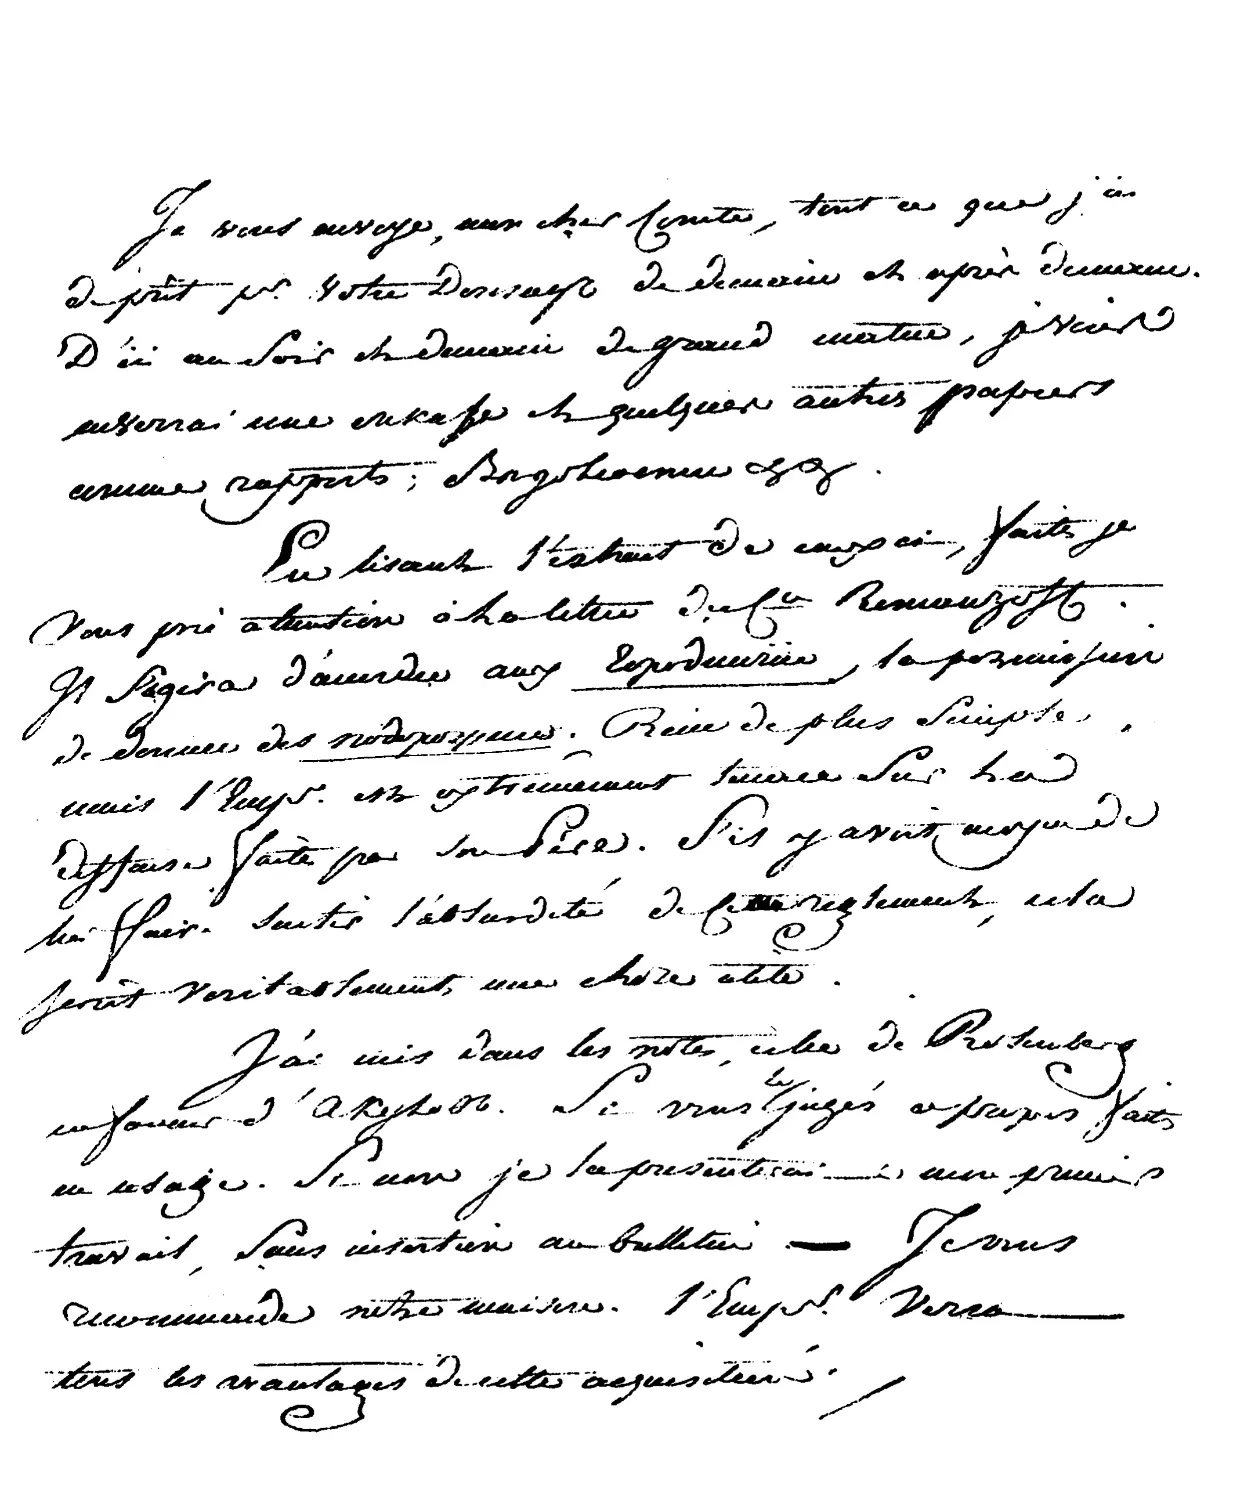 Je vous envoye, mon cher Comte, tout ce que j'ai
de prêt pr. Votre Doscsayo de demain et après demain.
D'ici au soir et demain de grand matin, je vous
enverrai une oukase et quelques autres papiers
comme rapports;
En lisant l'extrait de faites je
vous prie attention à la lettre du Cte Romanzoff.
Il s'agira d'accorder aux la permission
de donner des подорожныя. Rien de plus simple,
mais l'Empr. est extrêmement tenace sur la
deffense faite par son Père. S'il y avoit moyen de
lui faire sentir l'absurdité de ce reglement, cela
seroit veritablement une chose utile.
J'ai mis dans les notes, celle de Rosenberg
en faveur d' Si vous le jugés à propos faites
en usage. Si non je la presenterai à mon premier
travail, sans insertion au bulletin — Je vous
recommande notre maison. l'Empr. verra
tous les avantages de cette acquisition.